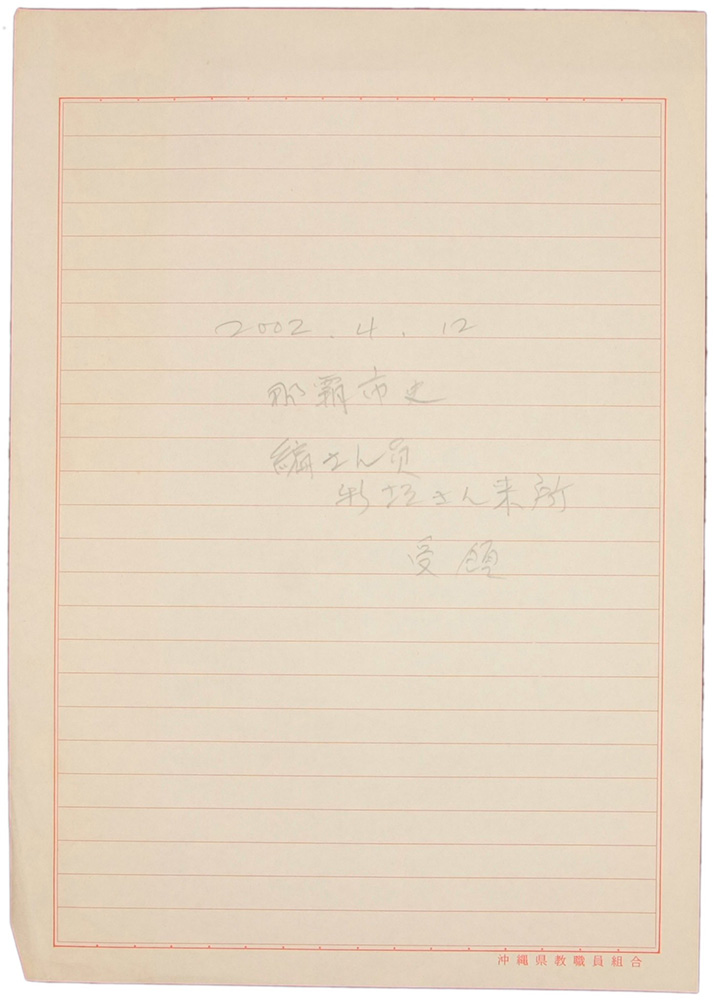 2002.4.12
那覇市史
編さん員
新垣さん来所
受領
沖縄県教職員組合